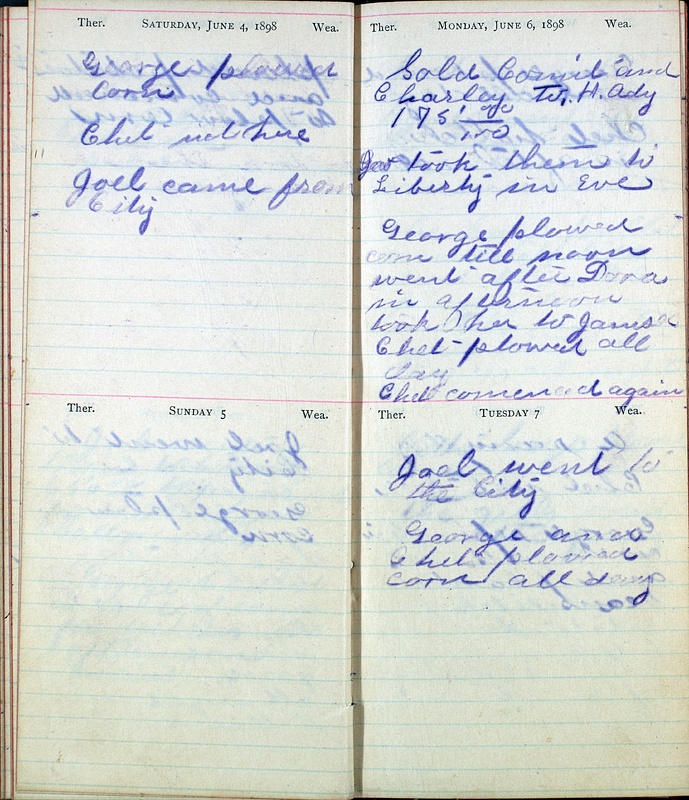 Ther. SATURDAY, JUNE 4, 1898 Wea.
George plowed
Corn
Chet not here
Joel came from
City
Ther. SUNDAY 5 Wea.
Ther. MONDAY, JUNE 6, 1898 Wea.
Sold and
Charley To. H. Ady
175 00/100
Geo took them to
Liberty in Eve
George plowed
corn till noon
went after Dora
in afternoon
took her to James
Chet plowed all
day
Chet comenced again
Ther. TUESDAY 7 Wea.
Joel went to
the City
George and
Chet plowed
corn all day